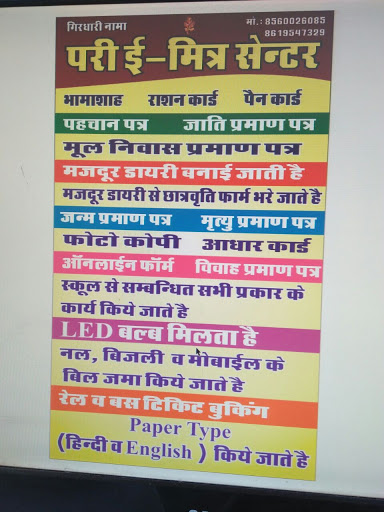 गिरधारी नामा
मो.: 8560026085
8619547329
परी ई-मित्र सेन्टर
भामाशाह राशन कार्ड पैन कार्ड
पहचान पत्र जाति प्रमाण पत्र
मूल निवास प्रमाण पत्र
मजदूर डायरी बनाई जाती है
मजदूर डायरी से छात्रवृति फार्म भरे जाते है
जन्म प्रमाण पत्र मृत्यु प्रमाण पत्र
फोटो कोपी आधार कार्ड
ऑनलाईन फॉर्म विवाह प्रमाण पत्र
स्कूल से सम्बन्धित सभी प्रकार के
कार्य किये जाते है
LED बल्ब मिलता है
नल, बिजली व मोबाईल के
बिल जमा किये जाते है
रेल व बस टिकिट बुकिंग
Paper Type
(हिन्दी व English ) किये जाते है